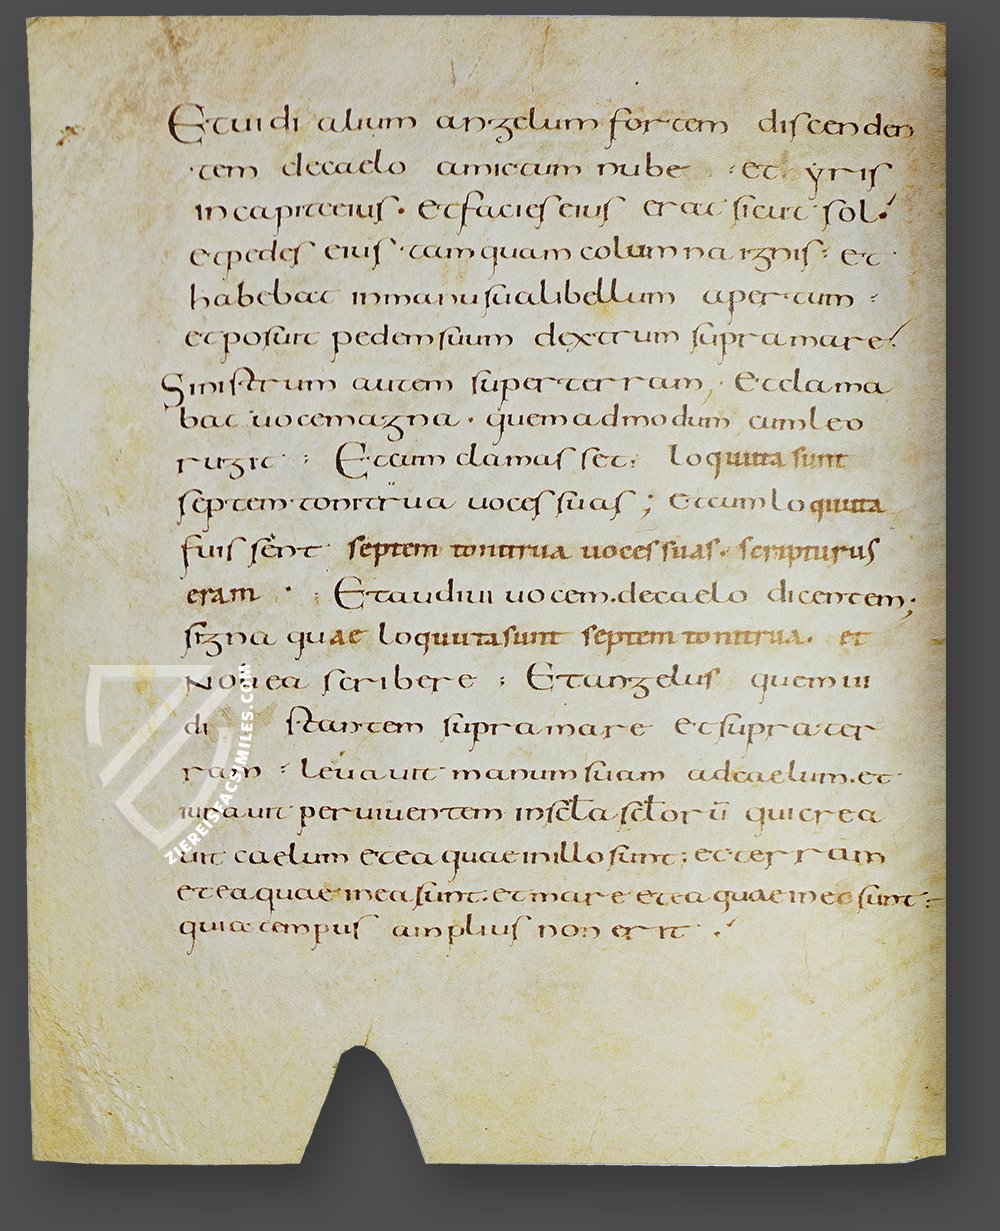 Et uidi alium angelum fortem discenden
tem de caelo amictum nube et yris
in capite eius. Et facies eius erat sicut sol.
et pedes eius tamquam columna ignis: et
habebat in manu sua libellum apertum :
et posuit pedem suum dextrum supra mare.
Sinistrum autem super terram, Et clama
bat uoce magna. quemadmodum cum leo
rugit : Et cum clamasset. loquuta sunt
septem tonitrua uoces suas ; Et cum loquuta
fuissent septem tonitrua uoces suas. scripturus
eram . Et audiui uocem. de caelo dicentem;
signa quae loquuta sunt septem tonitrua. et
Noli ea scribere ; Et angelus quem ui
di stantem supra mare et supra ter
ram : leuauit manum suam ad caelum. et
iurauit per uiuentem in scła scłorū qui crea
uit caelum et ea quae in illo sunt; et terram
et ea quae in ea sunt. et mare et ea quae in eo sunt:
quia tempus amplius non erit .
ZIEREISFACSIMILES.COM